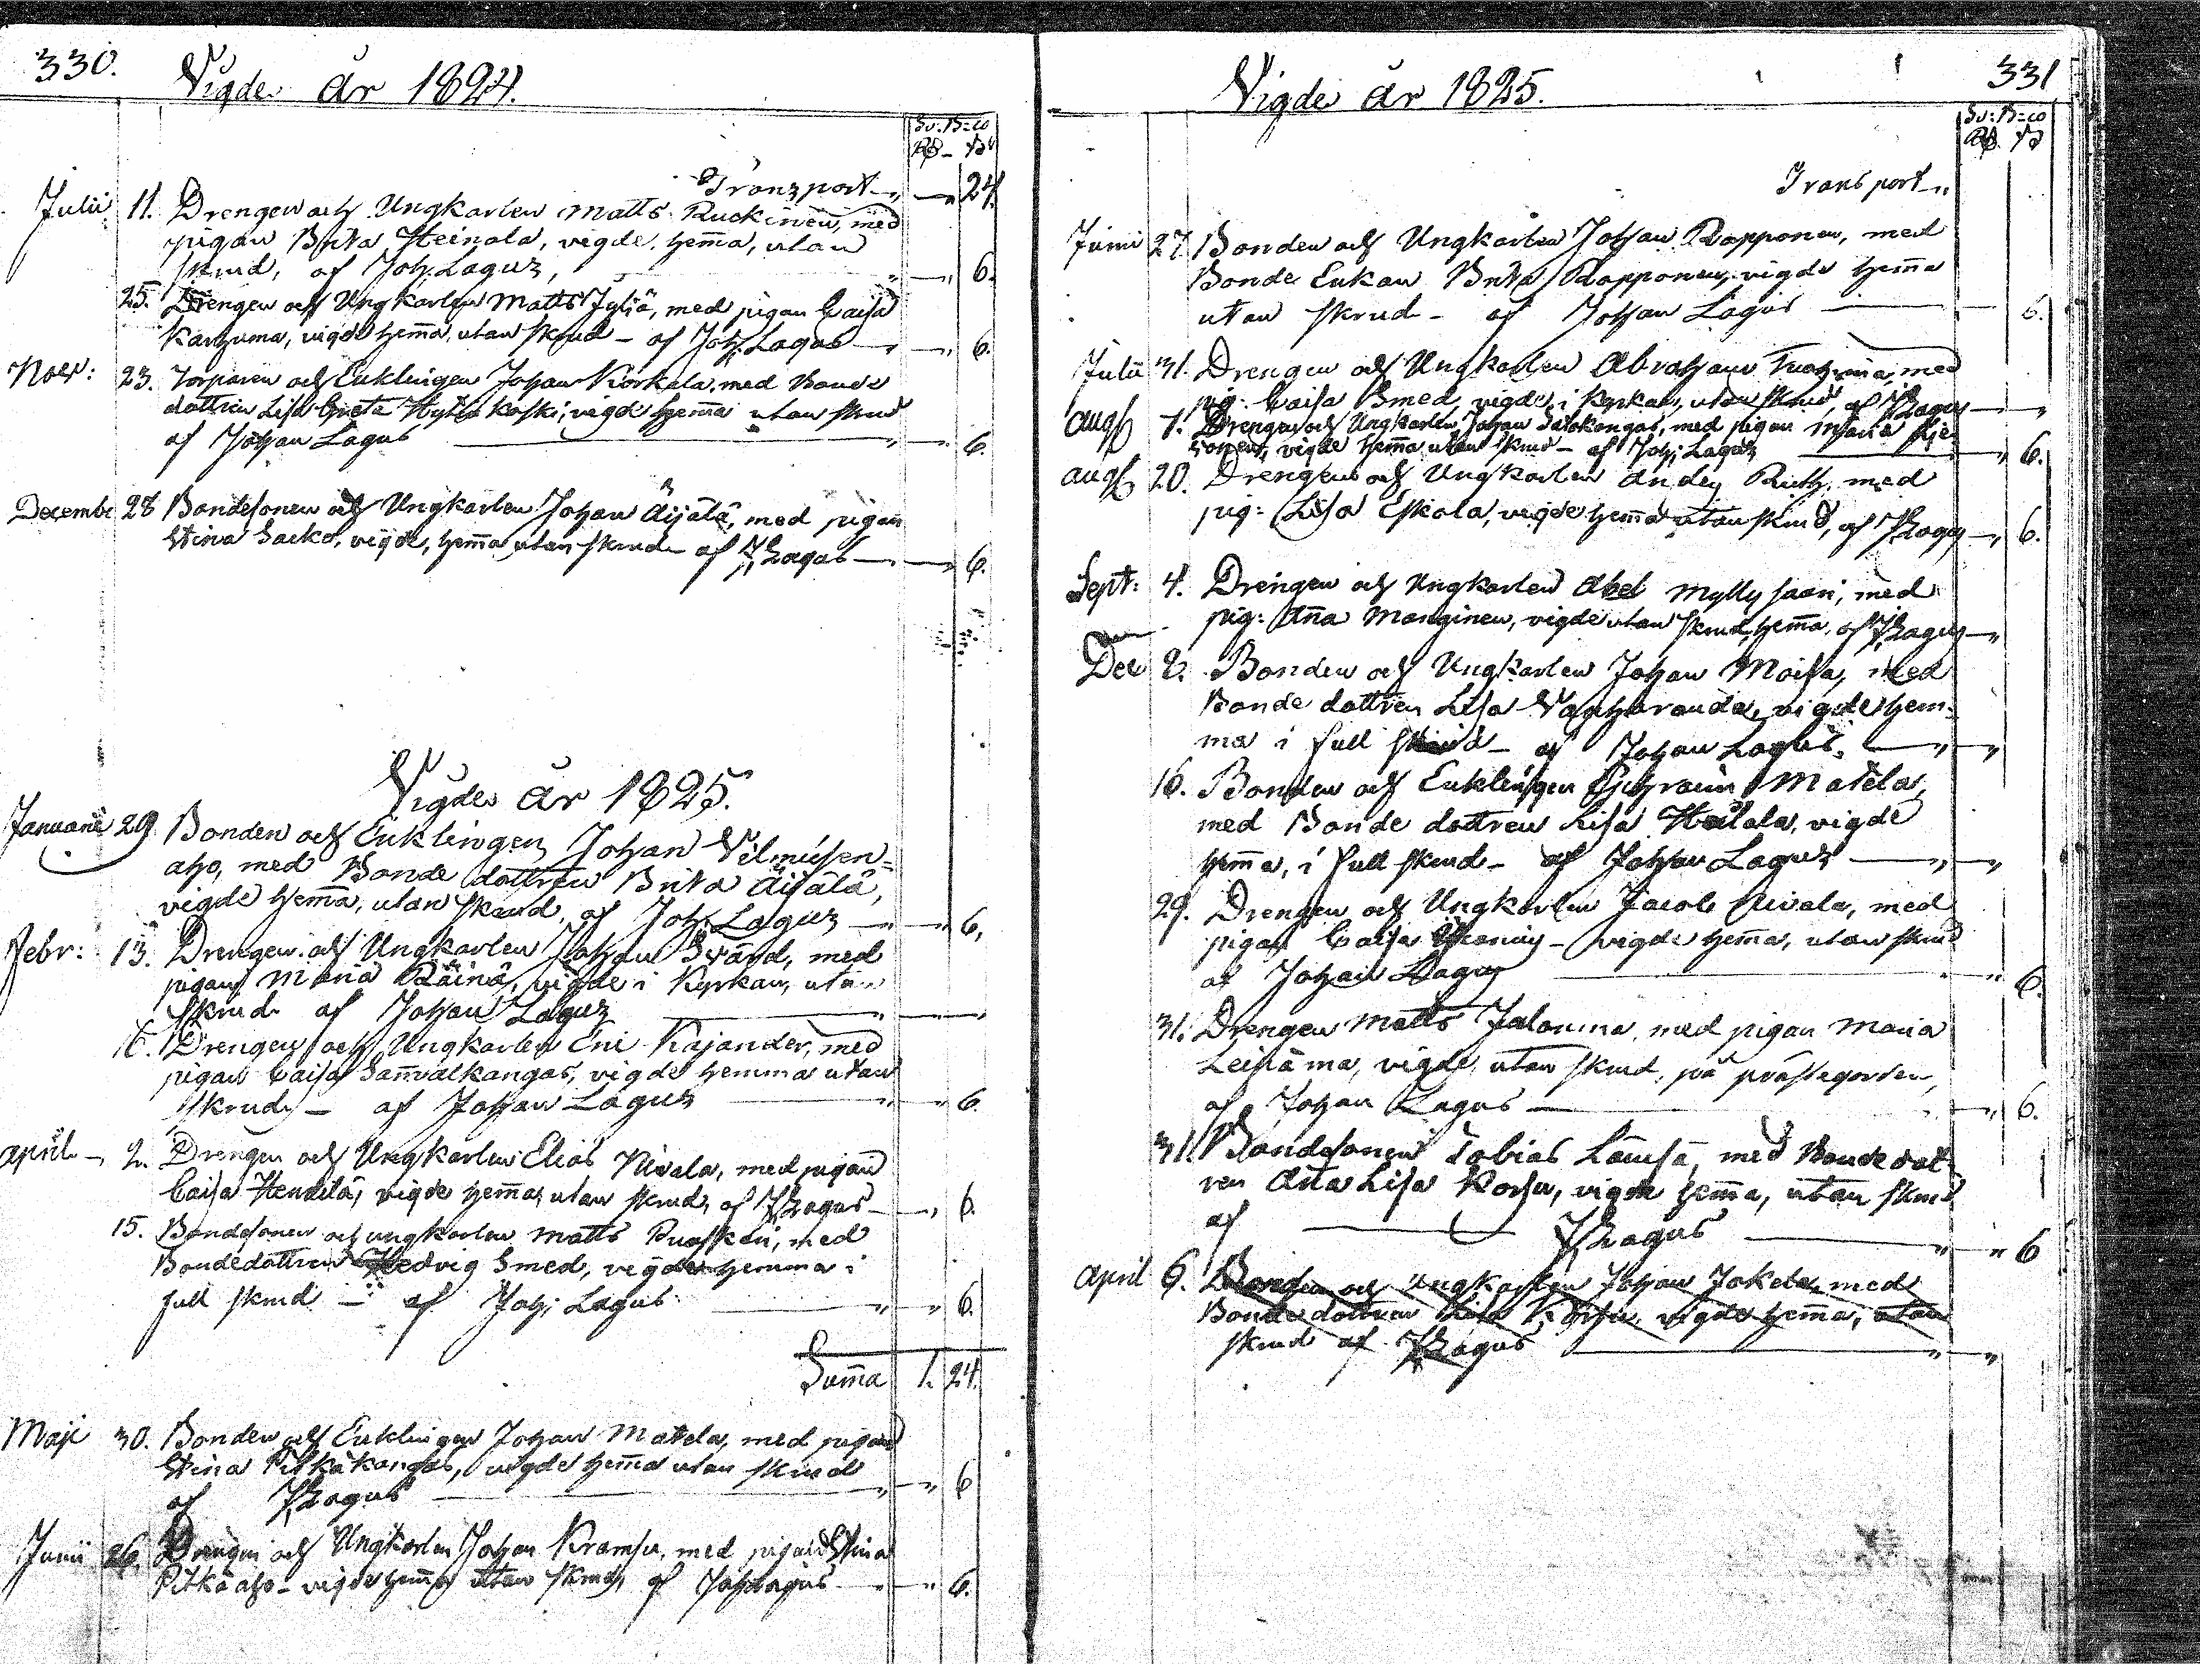 330.
Vigde år 1824.
Sv: B=co
Rd - sk
Transport - 24.
Julii 11. Drengen och Ungkarlen Matts Ruckinen, med
pigan Brita Heinola, vigde, hem̄a, utan
skrud, af Joh. Lagus, 6.
25. Drengen och Ungkarlen Matts Jyljä, med pigan Caisa
Karhuma, vigde hem̄a, utan skrud - af Joh. Lagus 6.
Novr: 23. Torparen och Enklingen Johan Korkala, med Bonde
dottren Lisa Greta Hyttikoski, vigde hem̄a utan skrud
af Johan Lagus 6.
Decembr 28 Bondesonen och Ungkarlen Johan Äijälä, med pigan
Stina Sacko, vigde, hem̄a utan skrud - af J. Lagus 6.
Vigde år 1825.
Januarii 29. Bonden och Enklingen Johan Vilmusen=
aho, med Bonde dottren Brita Äijälä,
vigde hem̄a, utan skrud, af Joh. Lagus 6,
Febr: 13. Drengen och Ungkarlen Johan Svärd, med
pigan Maria Räinä, vigde i Kyrkan, utan
skrud af Johan Lagus
16. Drengen och Ungkarlen Eric Kajander, med
pigan Caisa Sam̄valkangas, vigde hemma utan
skrud - af Johan Lagus 6.
april - 2. Drengen och Ungkarlen Elias Nivala, med pigan
Caisa vigde hem̄a, utan skrud, af J. Lagus 6.
15. Bondesonen och ungkarlen Matts Ruuskan, med
Bondedottren Hedvig Smed, vigde hemma i
full skrud - af Joh: Lagus 6.
Sum̄a 1. 24.
Maji 30. Bonden och Enklingen Johan Matela, med pigan
Stina Pitkäkangas, vigde hem̄a utan skrud
af J. Lagus 6
Junii 26. Drengen och Ungkarlen Johan Kramsu, med pigan Stina
Pitkäaho - vigde hem̄a utan skrud, af Joh Lagus 6.
331
Vigde år 1825.
Sv: B=co
Rd. sk
Transport
Junii 27. Bonden och Ungkarlen Johan Rapponen, med
Bonde Enkan Brita Rapponen, vigde hem̄a
utan skrud - af Johan Lagus 6.
Julii 31. Drengen och Ungkarlen Abraham med
pig: Caisa Smed, vigde i Kyrkan, utan skrud, af J. Lagus
aug 7. Drengen och Ungkarlen Johan Salokangas, med pigan Maria
vigde hem̄a utan skrud - af Joh: Lagus 6.
aug 20. Drengen och Ungkarlen Anders med
pig: Lisa Eskola, vigde hem̄a utan skrud, af J. Lagus 6.
Sept: 4. Drengen och Ungkarlen Abel Myllysaari, med
pig: An̄a Manginen, vigde utan skrud, hem̄a, af J. Lagus
Dec 8. Bonden och Ungkarlen Johan Moisa, med
Bonde dottren Lisa Vanharanda, vigde hem=
ma i full skrud - af Johan Lagus.
16. Bonden och Enklingen Ephraim Matela,
med Bonde dottren Lisa vigde
hem̄a, i full skrud - af Johan Lagus
29. Drengen och Ungkarlen Jacob Nivala, med
pigan Caisa - vigde hem̄a, utan skrud
af Johan Lagus 6.
31. Drengen Matts Jalonina, med pigan Maria
Leipäma, vigde, utan skrud, på prästegården,
af Johan Lagus 6.
31. Bondesonen Tobias Länsä, med Bondedot-
ren An̄a Lisa Korsu, vigde hem̄a, utan skrud
af J. Lagus 6
April 6. Bonden och Ungkarlen Johan Jokela, med
Bonde dottren Lisa Korsu, vigde hem̄a, utan
skrud af J. Lagus